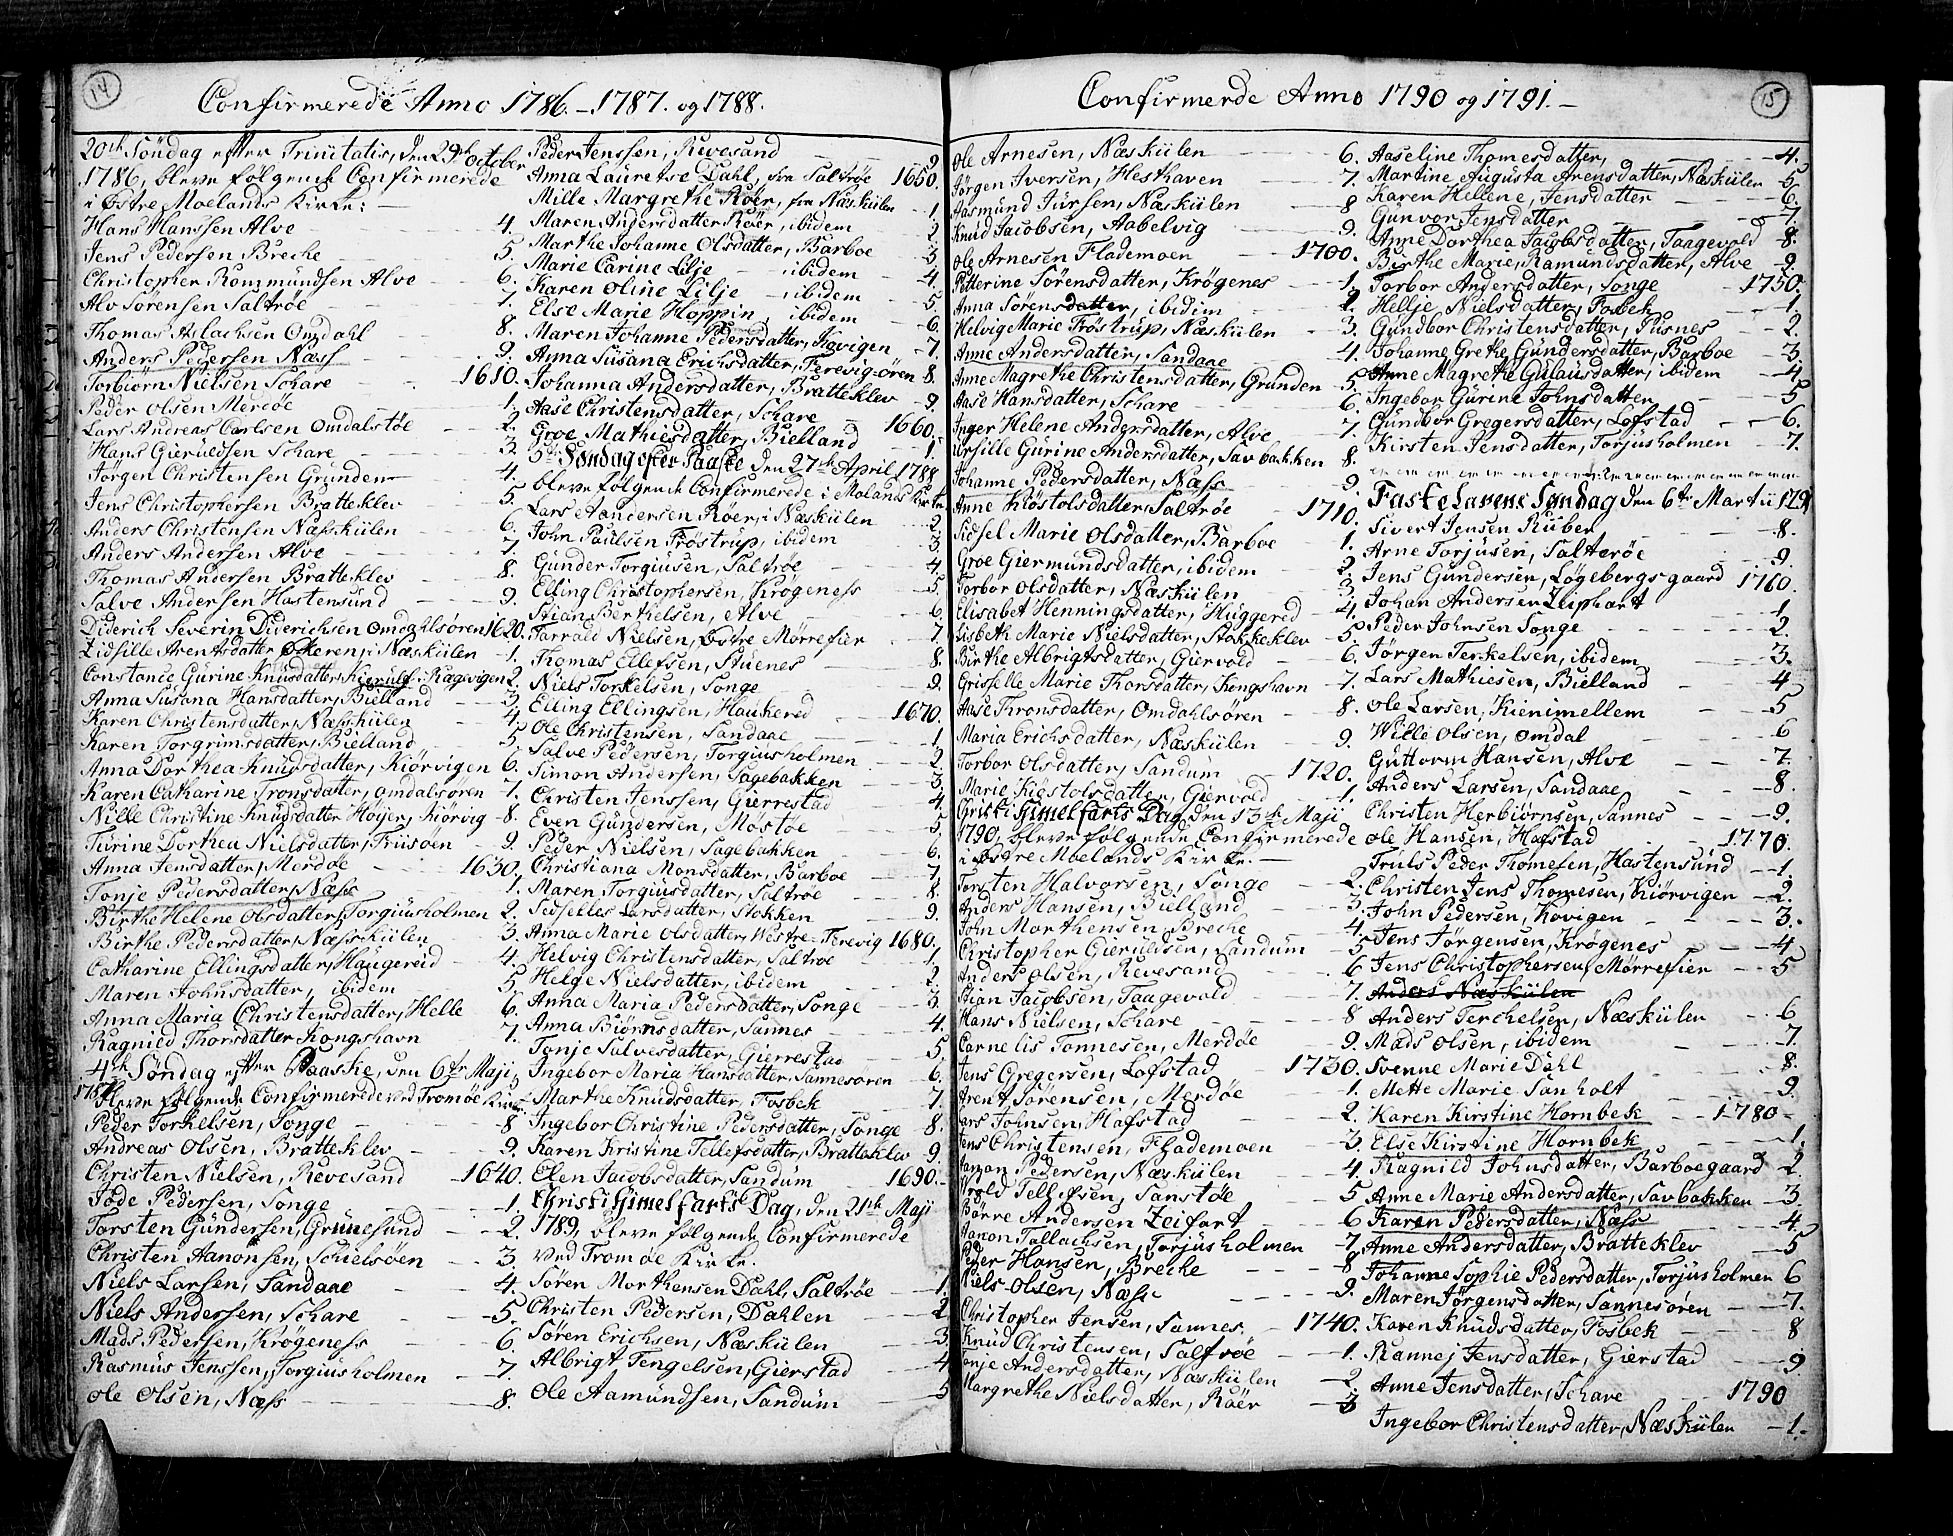 14
Confirmerede Anno 1786.-1787. og 1788.
20de Söndag efter Trinitatis, den 29de October
1786, bleve følgende Confirmerede
i Østre Moelands Kirke:
Hans Hanssen Alve 4.
Jens Pedersen Breche 5.
Christopher Romundssen Alve 6.
Alv Sörensen Saltröe 7.
Thomas Aslachsen Omdahl 8.
Anders Pedersen Næss 9.
Torbiörn Nielsen Schare 1610.
Peder Olsen Merdöe 1.
Lars Andreas Carlsen Omdalstöe 2.
Hans Gieruldsen Schare 3.
Jørgen Christensen Grunden 4.
Jens Christophersen Bratteklev 5.
Anders Christensen Næsskiilen 6.
Anders Andersen Alve 7.
Thomas Andersen Bratteklev 8.
Salve Andersen Hastensund 9.
Diderich Severin Diderichsen Omdahlsøren 1620.
Zidsille Arentsdatter Økeren, i Næskiilen 1.
Constance Gurine Knudsdatter, Kierulf, i Kagevigen 2.
Anna Susana Hansdatter, Bielland 3.
Karen Christensdatter, Næsskiilen 4.
Karen Torgrimsdatter, Bielland 5.
Anna Dorthea Knudsdatter, Kiörvigen 6.
Karen Catharine Tronsdatter, Omdalsøren 7.
Nille Christine Knudsdatter Höijer, Kiörvig 8.
Turine Dorthea Nielsdatter, Friisöen 9.
Anna Jensdatter, Merdöe 1630.
Tonje Pedersdatter, Næss 1.
Birthe Helene Olsdatter, Torgiusholmen 2.
Birthe Pedersdatter, Næsskiilen 3.
Catharine Ellingsdatter, Haugereid 4.
Maren Johnsdatter, ibidem 5.
Anna Maria Christensdatter, Helle 6.
Ragnild Thorsdatter Kongshavn 7.
4de Söndag efter Paaske, den 6te Maji
1787, bleve følgende Confirmerede ved Tromøe Kirke
Peder Torkelsen, Songe 8
Andreas Olsen, Bratteklev 9.
Christen Nielsen, Revesand 1640.
Jöde Pedersen, Songe 1.
Torsten Gundersen, Grunesund 2.
Christen Aanonsen, Schielsöen 3.
Niels Larsen, Sandaae 4.
Niels Andersen, Schare 5.
Mads Pedersen, Krögeness 6.
Rasmus Jenssen, Torgiusholmen 7.
Ole Olsen, Næss 8.
Peder Jenssen, Revesand 9.
Anna Lauretse Dahl, fra Saltröe 1650.
Mille Margrethe Röer, fra Næskiilen 1.
Maren Andersdatter Röer, ibidem 2
Marthe Johanne Olsdatter, Barboe 3
Marie Carine Lilje, ibidem 4.
Karen Oline Lilje, ibidem 5
Else Marie Hoppin, ibidem 6.
Maren Johanne Pedersdatter, Kovigen 7.
Anna Susana Erichsdatter, Ferevig-ören 8.
Johanna Andersdatter, Bratteklev 9.
Aase Christensdatter, Schare 1660.
Groe Mathiesdatter, Bielland 1.
5te Søndag efter Paaske den 27de April 1788
bleve følgende Confirmerede i Molands Kirke
Lars Andersen Röer, i Næskiilen 2
John Paulsen Tröstrup, ibidem 3.
Gunder Torgiusen, Saltröe 4
Elling Christophersen, Krögeness 5
Stian Berthelsen, Alve 6
Tarrald Nielsen, Østre Mörrefier 7.
Thomas Ellefsen, Stuenes 8.
Niels Torkelsen, Songe 9.
Elling Ellingsen, Haukered 1670.
Ole Christensen, Sandaae 1
Salve Pedersen, Torgiusholmen 2.
Simon Andersen, Sagebakken 3.
Christen Jenssen, Gierrestad 4.
Even Gundersen, Möstöe 5
Peder Nielsen, Sagebakken 6.
Christiana Monsdatter, Barboe 7
Maren Torgiusdatter, Saltröe 8.
Sedselles Larsdatter, Stokken 9.
Anna Marie Olsdatter, Westre-Ferevig 1680.
Helvig Christensdatter, Saltroe 1.
Helge Nielsdatter, ibidem 2.
Anna Maria Pedersdatter, Songe 3
Anna Biörnsdatter, Sannes 4.
Tonje Salvesdatter, Gierrestad 5
Ingebor Maria Hansdatter, Sannesøren 6.
Marthe Knudsdatter, Fosbek 7.
Ingebor Christine Pedersdatter, Songe 8.
Karen Kristine Tellefsdatter, Bratteklev 9
Elen Jacobsdatter, Sandum 1690.
Christi Himelfarts Dag, den 21de Maji
1789, bleve følgende Confirmerede
ved Tromøe Kirke.
Sören Morthensen Dahl, Saltröe 1.
Christen Pedersen, Dahlen 2
Søren Erichsen, Næskiilen 3
Albrigt Tengelsen, Gierstad 4
Ole Aamundsen, Sandum 5
15
Confirmerde Anno 1790 og 1791.
Ole Arnesen, Næskiilen 6.
Jörgen Iversen, Hesthaven 7.
Aasmund Jursen, Næskiilen 8
Knud Jacobsen, Aabelvig 9.
Ole Arnesen Flademoen 1700.
Petterine Sörensdatter, Krögenes 1.
Anna Sörensdatter, ibidim 2.
Helvig Marie Tröstrup, Næskiilen 3.
Anne Andersdatter, Sandaae 4.
Anne Magrethe Christensdatter, Grunden 5.
Aase Hansdatter, Schare 6.
Inger Helene Andersdatter, Alve 7.
Ursille Gurine Andersdatter, Savbakken 8.
Johanne Pedersdatter, Næss 9.
Anne Kiöstolsdatter, Saltröe 1710.
Sidsel Marie Olsdatter, Barboe 1.
Groe Giermundsdatter, ibidem 2.
Torbor Olsdatter, Næskiilen 3.
Elisabet Henningsdatter, Huggered 4.
Lisbeth Marie Nielsdatter, Stokkeklev 5.
Birthe Albrigtsdatter, Giervold 6.
Grisselle Marie Thorsdatter, Kongshavn 7.
Aase Tronsdatter, Omdahlsören 8.
Maria Erichsdatter, Næskiilen 9.
Torbor Olsdatter, Sandum 1720.
Marie Kiöstolsdatter, Giervold 1.
Christi Himelfarts Dag, den 13de Maji
1790, bleve følgende Confirmerede
i Østre Moelands Kirke.
Torsten Halvorsen, Songe 2.
Anders Hansen, Bielland 3.
John Morthensen, Breche 4.
Christopher Gieruldsen, Sandum 5
Anders Olsen, Revesand 6
Stian Jacobsen, Taagevold 7.
Hans Nielsen, Schare 8
Cornelis Tonnesen, Merdöe 9.
Jens Gregersen, Lofstad 1730.
Arent Sörensen, Merdöe 1.
Lars Johnsen, Hafstad 2.
Jens Christensen, Flademoen 3.
Aanon Pedersen, Næskiilen 4.
Wrold Tellefsen, Sanstöe 5
Börre Andersen Zeifart 6
Aanon Tallachsen, Torjusholmen 7
Peder Hansen, Breche 8
Niels Olsen, Næss 9.
Christopher Jensen, Sannes 1740.
Knud Christensen, Saltröe 1.
Tonje Andersdatter, Næskiilen 2
Margrethe Nielsdatter, Röer 3
Aaseline Thomesdatter, 4.
Martine Augusta Arensdatter, Næskiilen 5
Karen Hellene, Jensdatter 6.
Gunvor Jensdatter 7
Anne Dorthea Jacobsdatter, Taagevold 8.
Birthe Marie, Ramundsdatter, Alve 9
Torbor Andersdatter, Songe 1750.
Hellje Nielsdatter, Fosbek 1
Gundbor Christensdatter, Pusnes 2.
Johanne Grethe Gundersdatter, Barboe 3.
Anne Magrethe Gulausdatter, ibidem 4
Ingebor Gurine Johnsdatter 5
Gundbor Gregersdatter, Lofstad 6.
Kirsten Jensdatter, Torjusholmen 7.
Fastelavens Søndag den 6te Martii 1791
Sivert Jensen Kuber 8.
Arne Torjusen, Salteröe 9.
Jens Gundersen, Løgebergsgaard 1760.
Johan Andersen Zeiphart 1
Peder Johnsen Songe 2.
Jörgen Terkelsen, ibidem 3.
Lars Mathiesen, Bielland 4
Ole Larsen, Kienimellem 5
Wille Olsen, Omdal 6
Guttorm Hansen, Alve 7.
Anders Larsen, Sandaae 8.
Christen Herbiörnsen, Sannes 9.
Ole Hansen, Hafstad 1770.
Truls Peder Thomesen, Hastensund 1.
Christen Jens Thomesen, Kiörvigen 2.
John Pedersen, Kovigen 3.
Jens Jörgensen, Krögenes 4
Jens Christophersen, Mørrefier 5
Anders Næskiilen
Anders Terchelsen, Næskiilen 6
Mads Olsen, ibidem 7.
Svenne Marie Dahl 8.
Mette Marie Sanholt 9.
Karen Kirstine Hornbek 1780
Else Kirstine Hornbek 1.
Ragnild Johnsdatter, Barboegaard 2
Anne Marie Andersdatter, Savbakken 3
Karen Pedersdatter, Næss 4.
Anne Andersdatter, Bratteklev 5
Johanne Sophie Pedersdatter, Torjusholmen 6
Maren Jörgensdatter, Sannesøren 7.
Karen Knudsdatter, Fosbek 8
Rannej Jensdatter, Gierstad 9.
Anne Jensdatter, Schare 1790
Ingebor Christensdatter, Næskiilen 1.